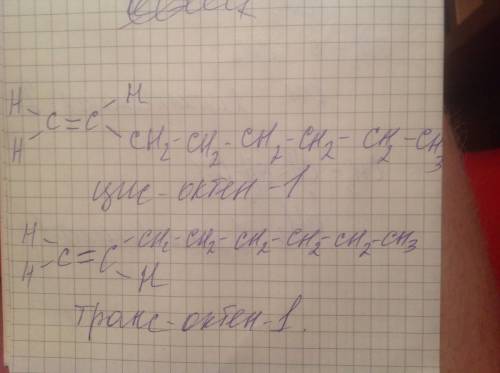 H H
C = C
H CH2 - CH2 - CH2 - CH2 - CH2 - CH3
цис-октен-1
H CH2 - CH2 - CH2 - CH2 - CH2 - CH3
C = C
H H
транс-октен-1.